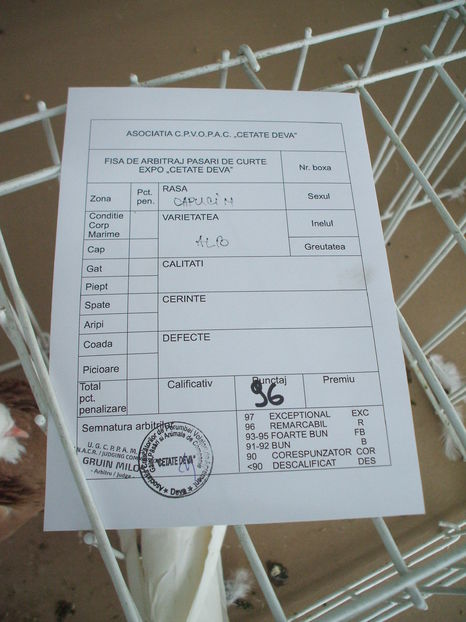 ASOCIATIA C.P.V.O.P.A.C. „CETATE DEVA"
FISA DE ARBITRAJ PASARI DE CURTE
EXPO „CETATE DEVA"
Nr. boxa
Zona
Pct. pen.
RASA
CAPUCIN
Sexul
Conditie
Corp
Marime
VARIETATEA
ALB
Inelul
Cap
Greutatea
Gat
CALITATI
Piept
Spate
CERINTE
Aripi
Coada
DEFECTE
Picioare
Total
pct.
penalizare
Calificativ
Punctaj
96
Premiu
Semnatura arbitrilor
97 EXCEPTIONAL EXC
96 REMARCABIL R
93-95 FOARTE BUN FB
91-92 BUN B
90 CORESPUNZATOR COR
<90 DESCALIFICAT DES
U. G. C. P. P. A. M.
GRUIN MILO
- Arbitru / judge -
"CETATE DEVA"
Deva